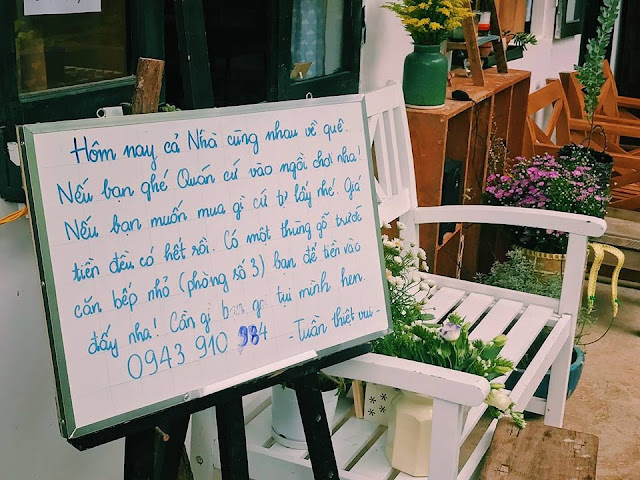 Hôm nay cả Nhà cũng nhau về quê.
Nếu bạn ghé Quán cứ vào ngồi chơi nha!
Nếu bạn muốn mua gì cứ tự lấy nhé. Giá
tiền đều có hết rồi. Có một thùng gỗ trước
căn bếp nhỏ (phòng số 3) bạn để tiền vào
đấy nha! Cần gì bạn gọi tụi mình hen
0943 910 984 - Tuần thiệt vui -